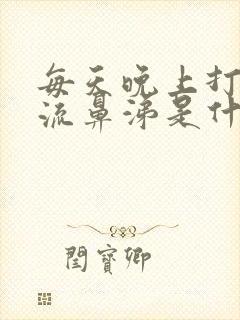 每天晚上打
流鼻涕是什
閆寶卿